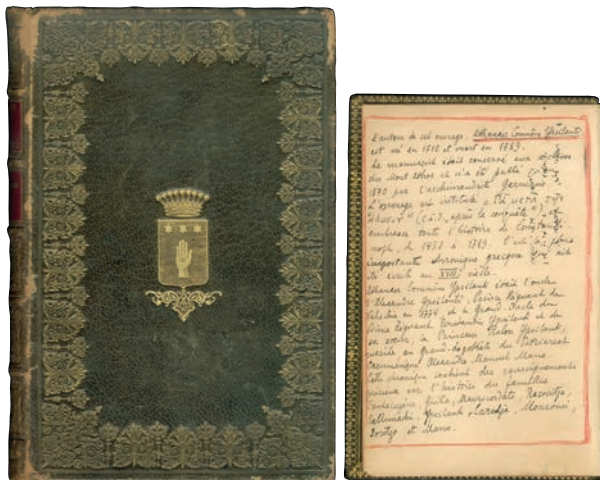 L'auteur de cet ouvrage, Athanase Comnène Ypsilanti
est né en 1711 et mort en 1789.
Le manuscrit était conservé aux archives
du Mont Athos et il a été publié
1870 par l'archimandrite Germain
L'ouvrage est intitulé « Τὰ μετὰ τὴν
Ἅλωσιν » (c.à.d. après la conquête)
embrasse toute l'histoire de
de 1453 à 1789. C'est la plus
importante chronique grecque qui ait
été écrite au XVIII siècle.
Athanase Comnène Ypsilanti était l'oncle
d'Alexandre Ypsilanti, Prince Régnant de
Valachie en 1774 et le Grand-Oncle du
Prince Régnant Constantin Ypsilanti et de
sa sœur, la Princesse Ypsilanti,
mariée au Grand-Logothète du Patriarcat
Oecuménique Alexandre Manuel Mano.
Cette chronique contient des renseignements
précieux sur l'histoire des familles
Ghika, Mavrocordato, Racovitza,
Callimachi, Ypsilanti, Caradja, Mourousi,
Soutzo et Mano.